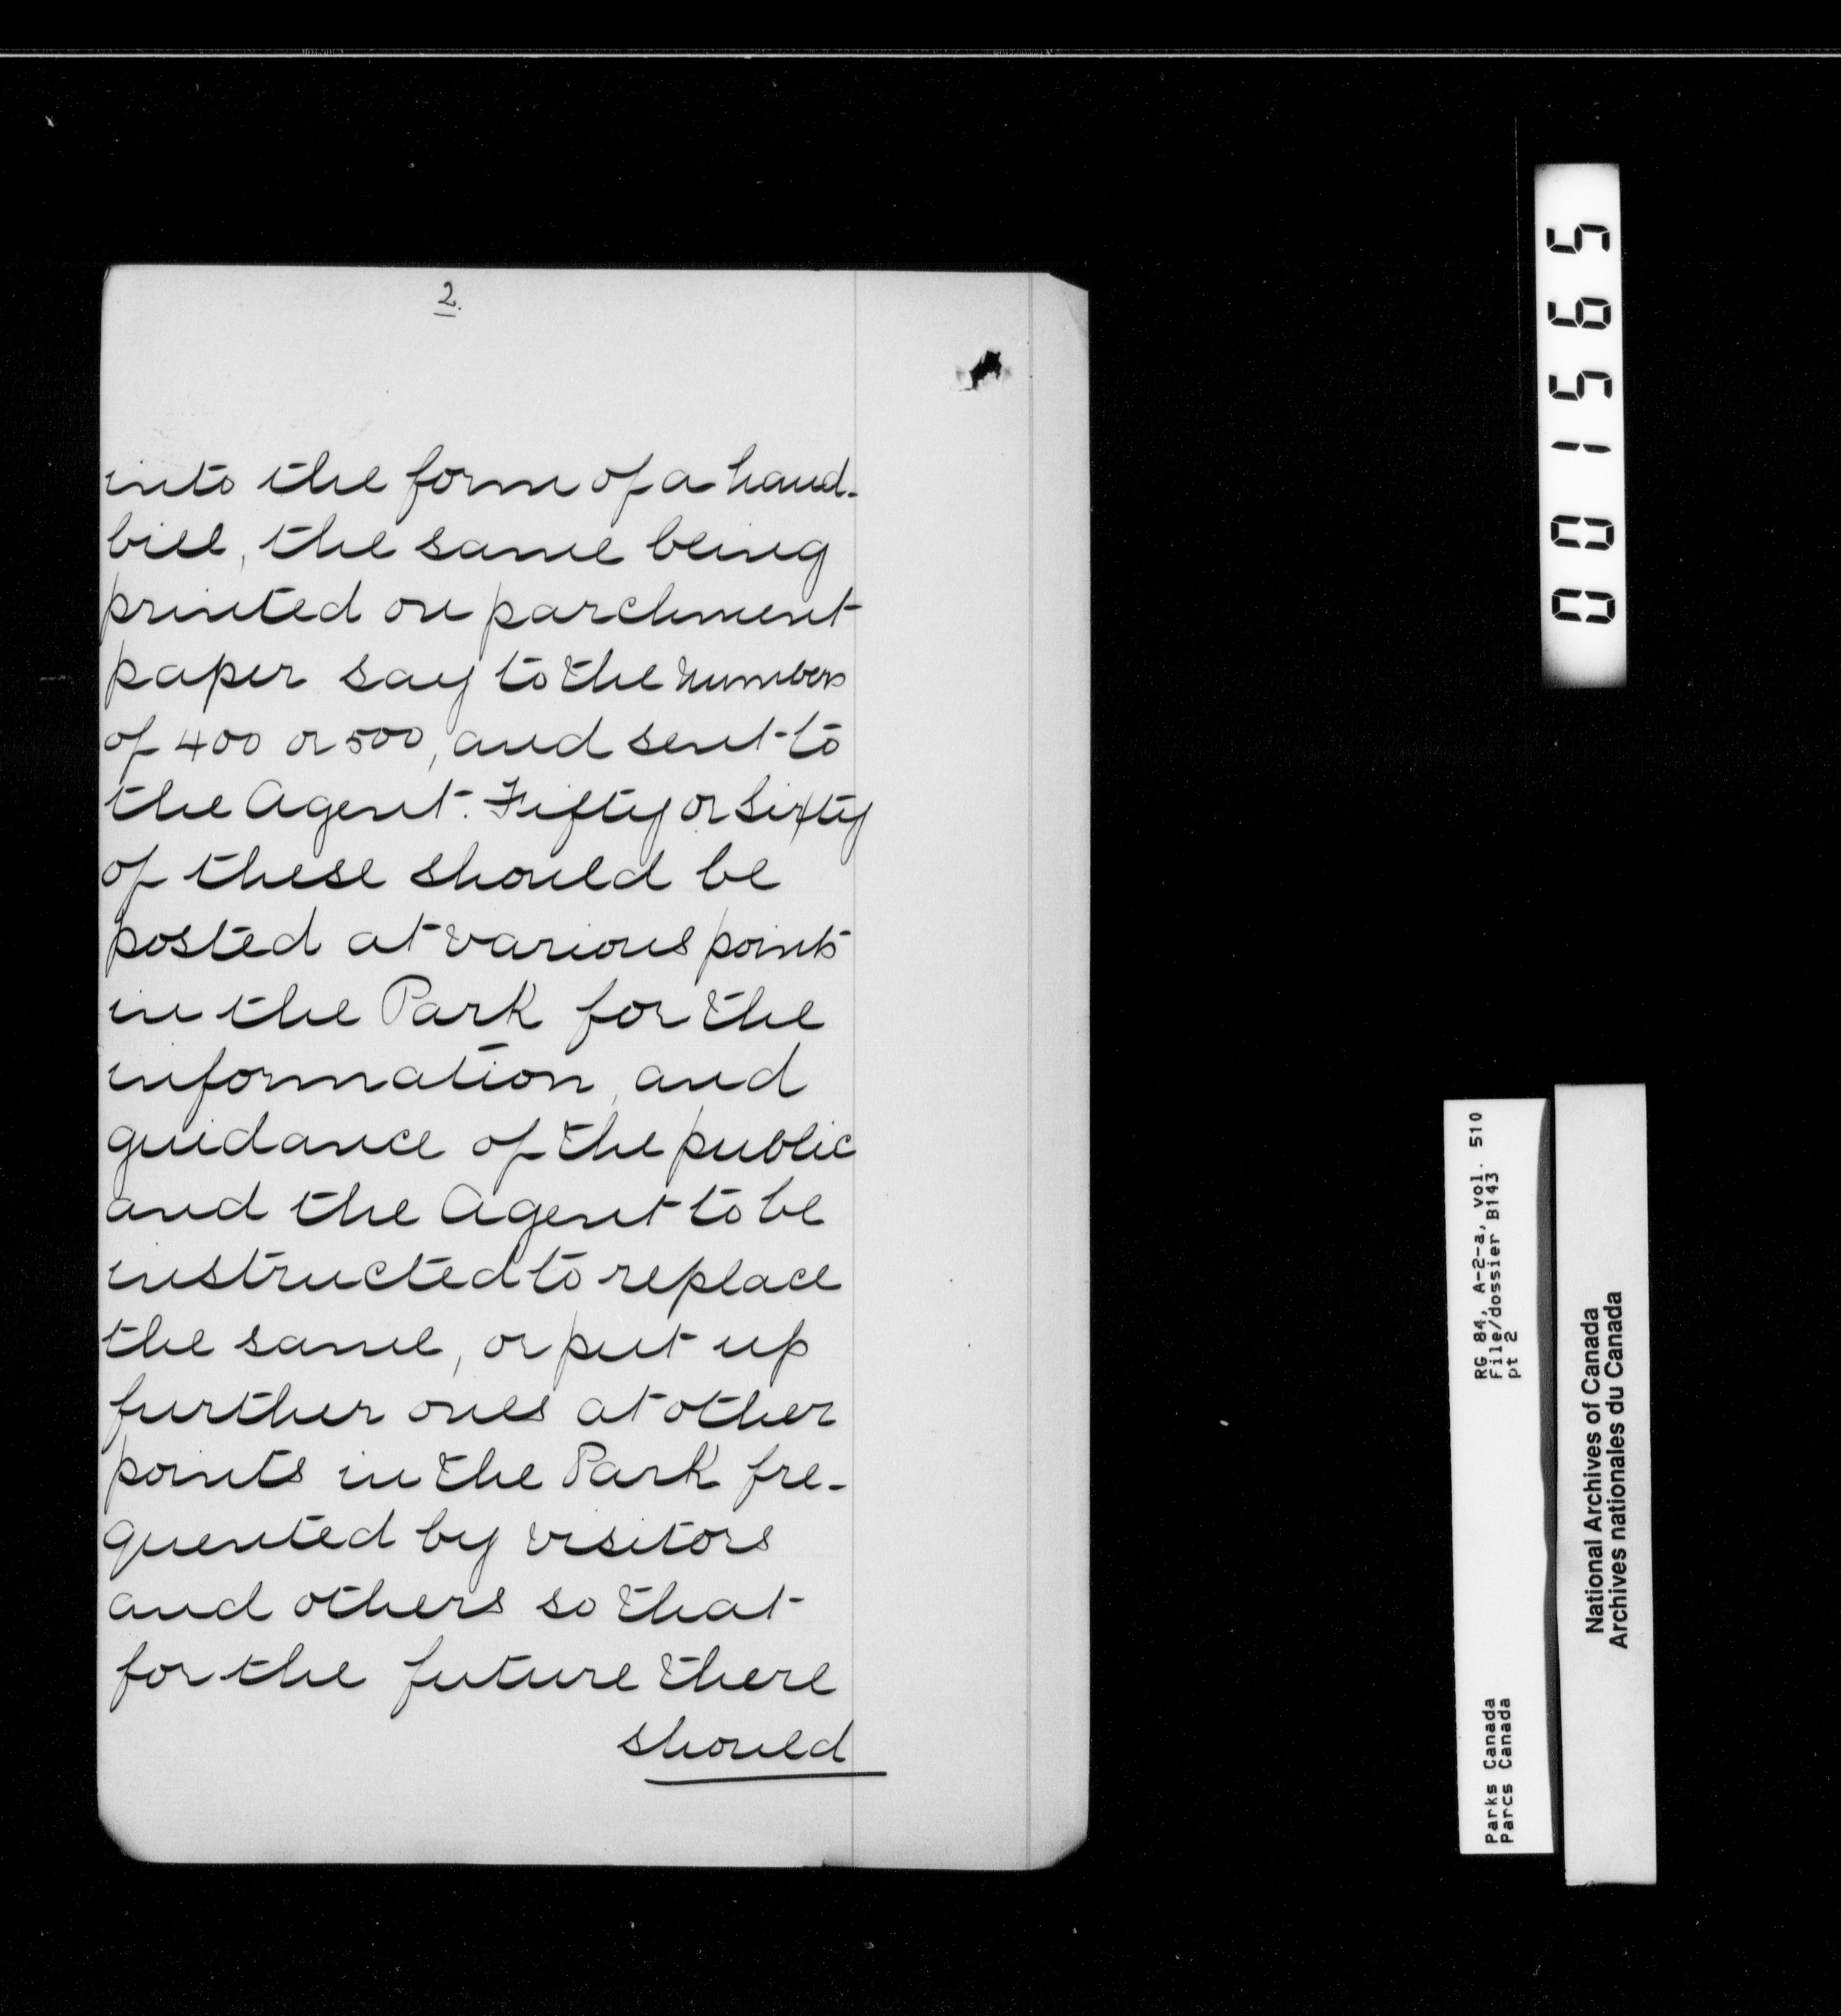 2.
into the form of a hand-
bill, the same being
printed on parchment
paper say to the numbers
of 400 or 500, and sent to
the Agent. Fifty or Sixty
of these should be
posted at various points
in the Park for the
information, and
guidance of the public
and the Agent to be
instructed to replace
the same, or put up
further ones at other
points in the Park fre-
quented by visitors
and others so that
for the future there
should
001565
RG 84, A-2-a, vol. 510
File/dossier B143
pt 2
Parks Canada
Parcs Canada
National Archives of Canada
Archives nationales du Canada